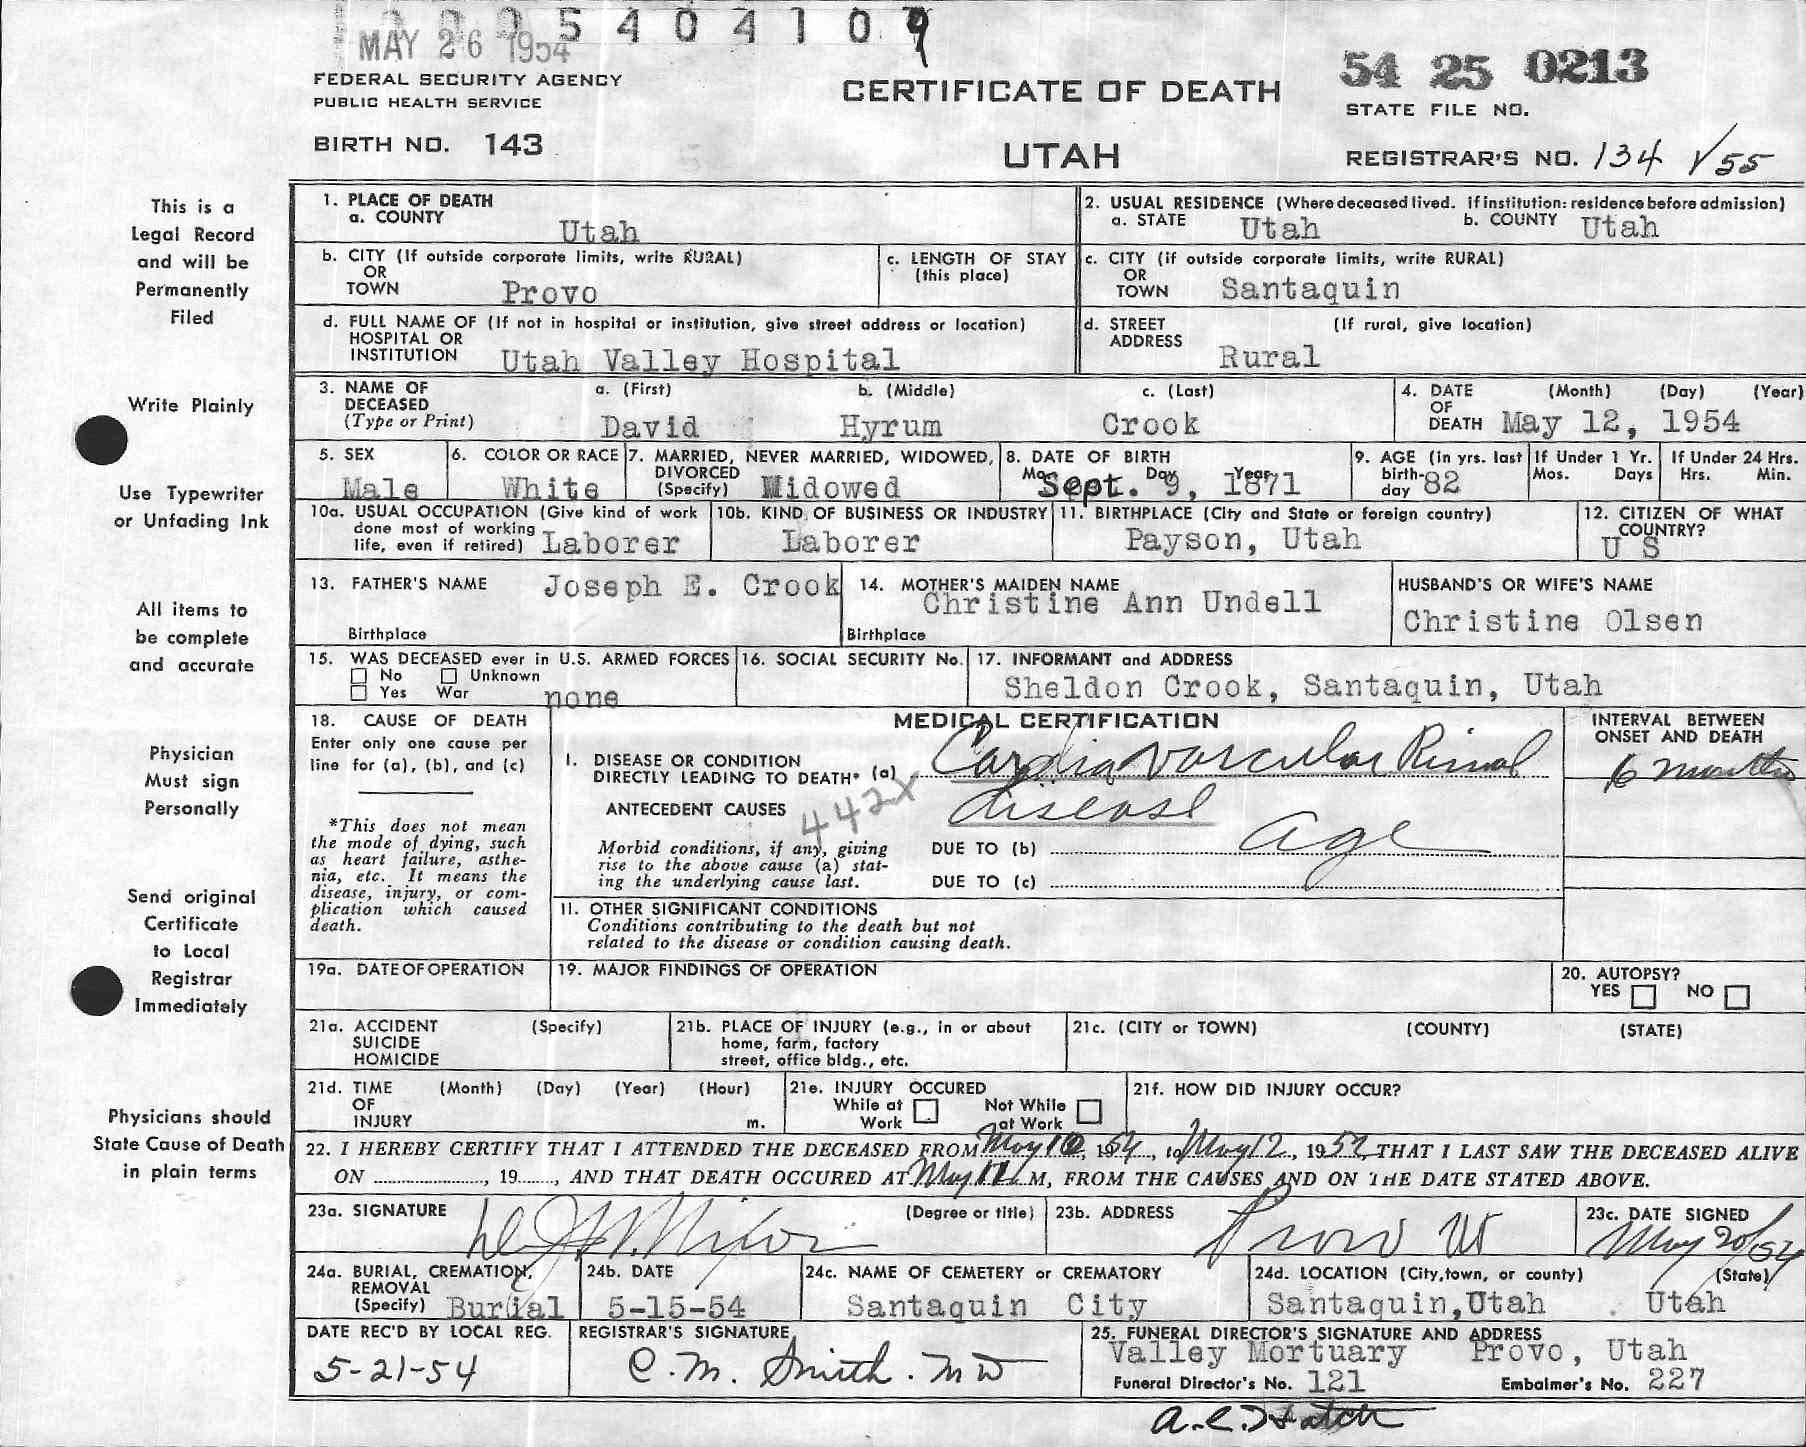 5 4 0 4 1 0 9
MAY 26 1954
FEDERAL SECURITY AGENCY
PUBLIC HEALTH SERVICE
BIRTH NO. 143
CERTIFICATE OF DEATH
UTAH
54 25 0213
STATE FILE NO.
REGISTRAR'S NO. 134 √55
This is a
Legal Record
and will be
Permanently
Filed
Write Plainly
Use Typewriter
or Unfading Ink
All items to
be complete
and accurate
Physician
Must sign
Personally
Send original
Certificate
to Local
Registrar
Immediately
Physicians should
State Cause of Death
in plain terms
1. PLACE OF DEATH
a. COUNTY
Utah
2. USUAL RESIDENCE (Where deceased lived. if institution: residence before admission)
a. STATE Utah b. COUNTY Utah
b. CITY (If outside corporate limits, write RURAL)
OR
TOWN Provo
c. LENGTH OF STAY
(this place)
c. CITY (if outside corporate limits, write RURAL)
OR
TOWN Santaquin
d. FULL NAME OF (If not in hospital or institution, give street address or location)
HOSPITAL OR
INSTITUTION Utah Valley Hospital
d. STREET (If rural, give location)
ADDRESS
Rural
3. NAME OF a. (First) b. (Middle) c. (Last)
DECEASED
(Type or Print) David Hyrum Crook
4. DATE (Month) (Day) (Year)
OF
DEATH May 12, 1954
5. SEX
Male
6. COLOR OR RACE
White
7. MARRIED, NEVER MARRIED, WIDOWED,
DIVORCED
(Specify) Widowed
8. DATE OF BIRTH
Mo. Day Year
Sept. 9, 1871
9. AGE (in yrs. last
birth-
day 82
If Under 1 Yr.
Mos. Days
If Under 24 Hrs.
Hrs. Min.
10a. USUAL OCCUPATION (Give kind of work
done most of working
life, even if retired) Laborer
10b. KIND OF BUSINESS OR INDUSTRY
Laborer
11. BIRTHPLACE (City and State or foreign country)
Payson, Utah
12. CITIZEN OF WHAT
COUNTRY?
U S
13. FATHER'S NAME Joseph E. Crook
Birthplace
14. MOTHER'S MAIDEN NAME
Christine Ann Undell
Birthplace
HUSBAND'S OR WIFE'S NAME
Christine Olsen
15. WAS DECEASED ever in U.S. ARMED FORCES
No Unknown
Yes War none
16. SOCIAL SECURITY No.
17. INFORMANT and ADDRESS
Sheldon Crook, Santaquin, Utah
18. CAUSE OF DEATH
Enter only one cause per
line for (a), (b), and (c)
*This does not mean
the mode of dying, such
as heart failure, asthe-
nia, etc. It means the
disease, injury, or com-
plication which caused
death.
MEDICAL CERTIFICATION
I. DISEASE OR CONDITION
DIRECTLY LEADING TO DEATH* (a) Cardio vascular Rinal
ANTECEDENT CAUSES 442X disease
Morbid conditions, if any, giving
rise to the above cause (a) stat-
ing the underlying cause last.
DUE TO (b) age
DUE TO (c)
INTERVAL BETWEEN
ONSET AND DEATH
6 months
II. OTHER SIGNIFICANT CONDITIONS
Conditions contributing to the death but not
related to the disease or condition causing death.
19a. DATE OF OPERATION
19. MAJOR FINDINGS OF OPERATION
20. AUTOPSY?
YES NO
21a. ACCIDENT (Specify)
SUICIDE
HOMICIDE
21b. PLACE OF INJURY (e.g., in or about
home, farm, factory
street, office bldg., etc.
21c. (CITY or TOWN) (COUNTY) (STATE)
21d. TIME (Month) (Day) (Year) (Hour)
OF
INJURY m.
21e. INJURY OCCURED
While at Not While
Work at Work
21f. HOW DID INJURY OCCUR?
22. I HEREBY CERTIFY THAT I ATTENDED THE DECEASED FROM May 10, 1954, to May 12, 1954 THAT I LAST SAW THE DECEASED ALIVE
ON ..., 19..., AND THAT DEATH OCCURED AT May 12 M, FROM THE CAUSES AND ON THE DATE STATED ABOVE.
23a. SIGNATURE (Degree or title)
23b. ADDRESS Provo Ut
23c. DATE SIGNED
May 20/54
24a. BURIAL, CREMATION,
REMOVAL
(Specify) Burial
24b. DATE
5-15-54
24c. NAME OF CEMETERY or CREMATORY
Santaquin City
24d. LOCATION (City, town, or county) (State)
Santaquin, Utah . Utah
DATE REC'D BY LOCAL REG.
5-21-54
REGISTRAR'S SIGNATURE
C. M. Smith. MD
25. FUNERAL DIRECTOR'S SIGNATURE AND ADDRESS
Valley Mortuary Provo, Utah
Funeral Director's No. 121 Embalmer's No. 227
a. C. Hatch